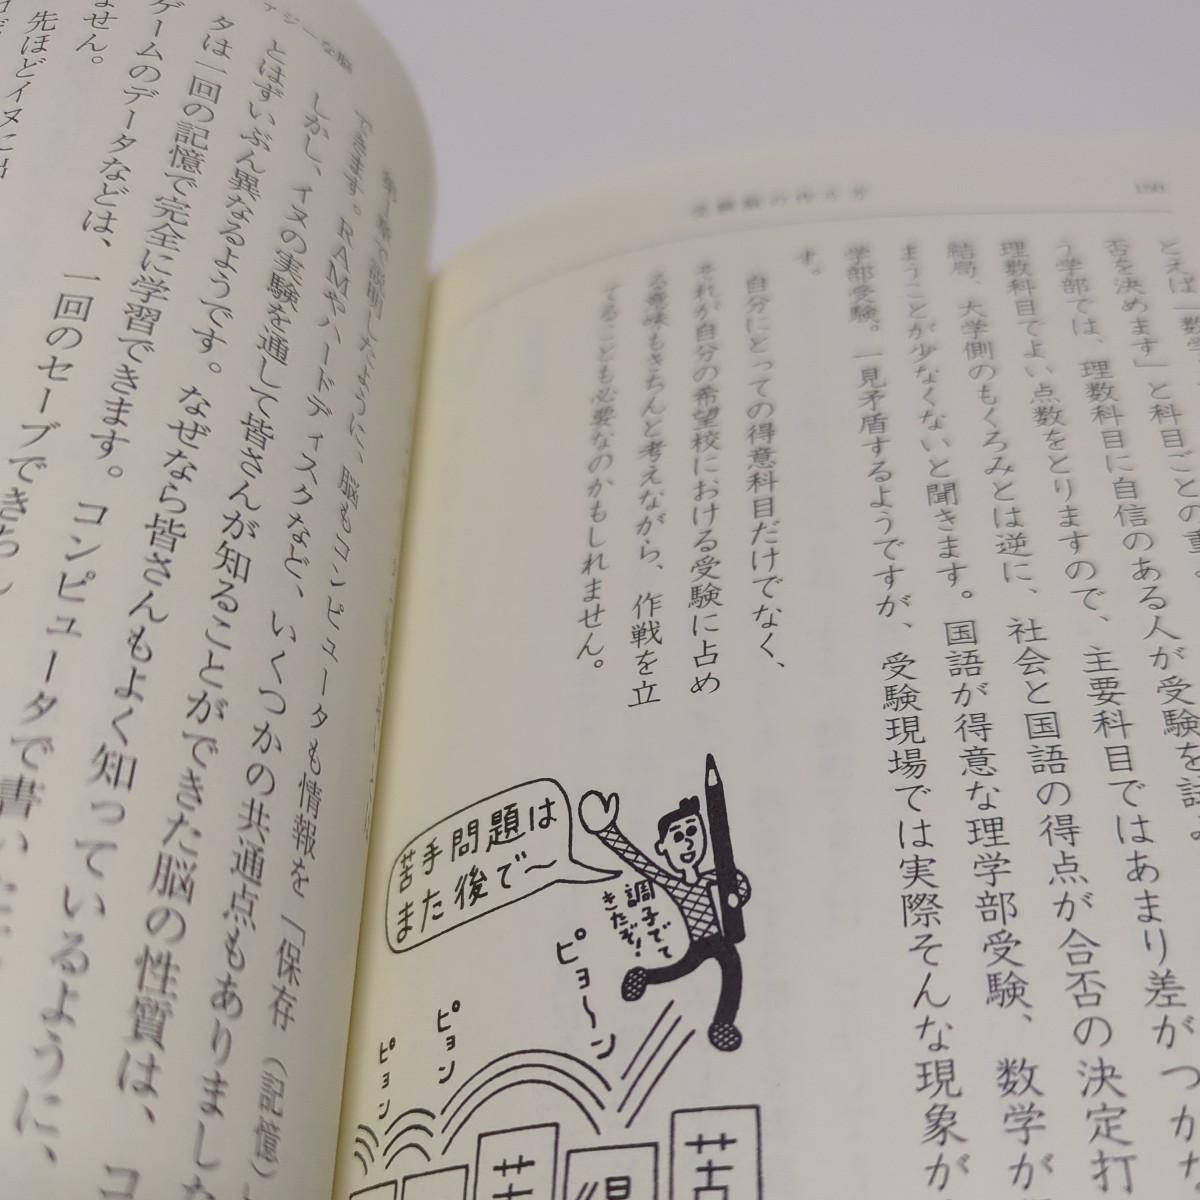 受験脳の作り方
150
とえば「数学
否を決めます」と科目ごとの重
う学部では、理数科目に自信のある人が受験を試
理数科目でよい点数をとりますので、主要科目ではあまり差がつかな
結局、大学側のもくろみとは逆に、社会と国語の得点が合否の決定打
まうことが少なくないと聞きます。国語が得意な理学部受験、数学が
学部受験。一見矛盾するようですが、受験現場では実際そんな現象が
す。
自分にとっての得意科目だけでなく、
それが自分の希望校における受験に占め
る意味もきちんと考えながら、作戦を立
てることも必要なのかもしれません。
苦手問題は
また後で〜
調子でて
きたぞ!
ピョ〜ン
ピョン
ピョン
苦
得
苦
第1章で説明したように、脳もコンピュータも情報を「保存(記憶)
できます。RAMやハードディスクなど、いくつかの共通点もありました
しかし、イヌの実験を通して皆さんが知ることができた脳の性質は、コ
とはずいぶん異なるようです。なぜなら皆さんもよく知っているように、
タは一回の記憶で完全に学習できます。コンピュータで書いた
ゲームのデータなどは、一回のセーブできちん
ません。
先ほどイヌに